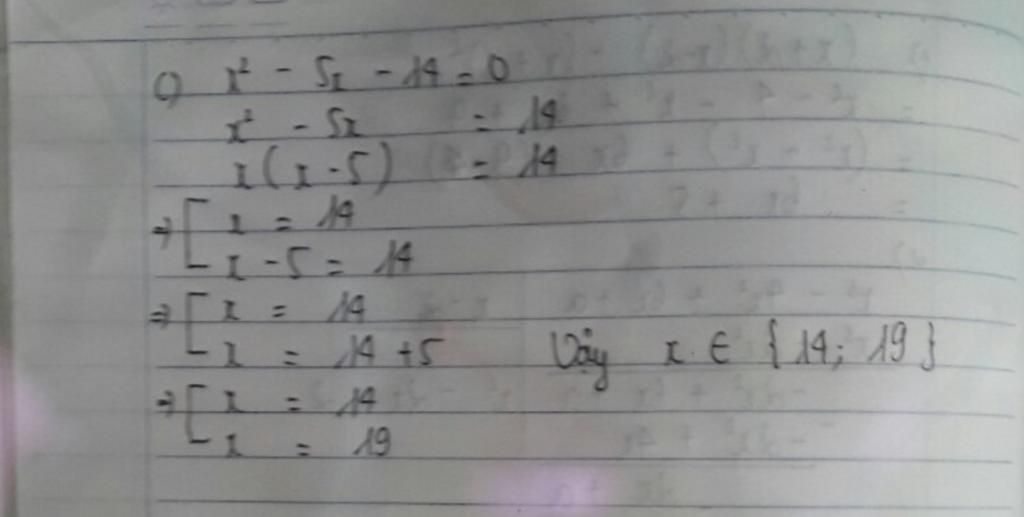 c) x² - 5x - 14 = 0
x² - 5x = 14
x(x - 5) = 14
⇒ [ x = 14
x - 5 = 14
⇒ [ x = 14
x = 14 + 5 Vậy x ∈ {14; 19}
⇒ [ x = 14
x = 19